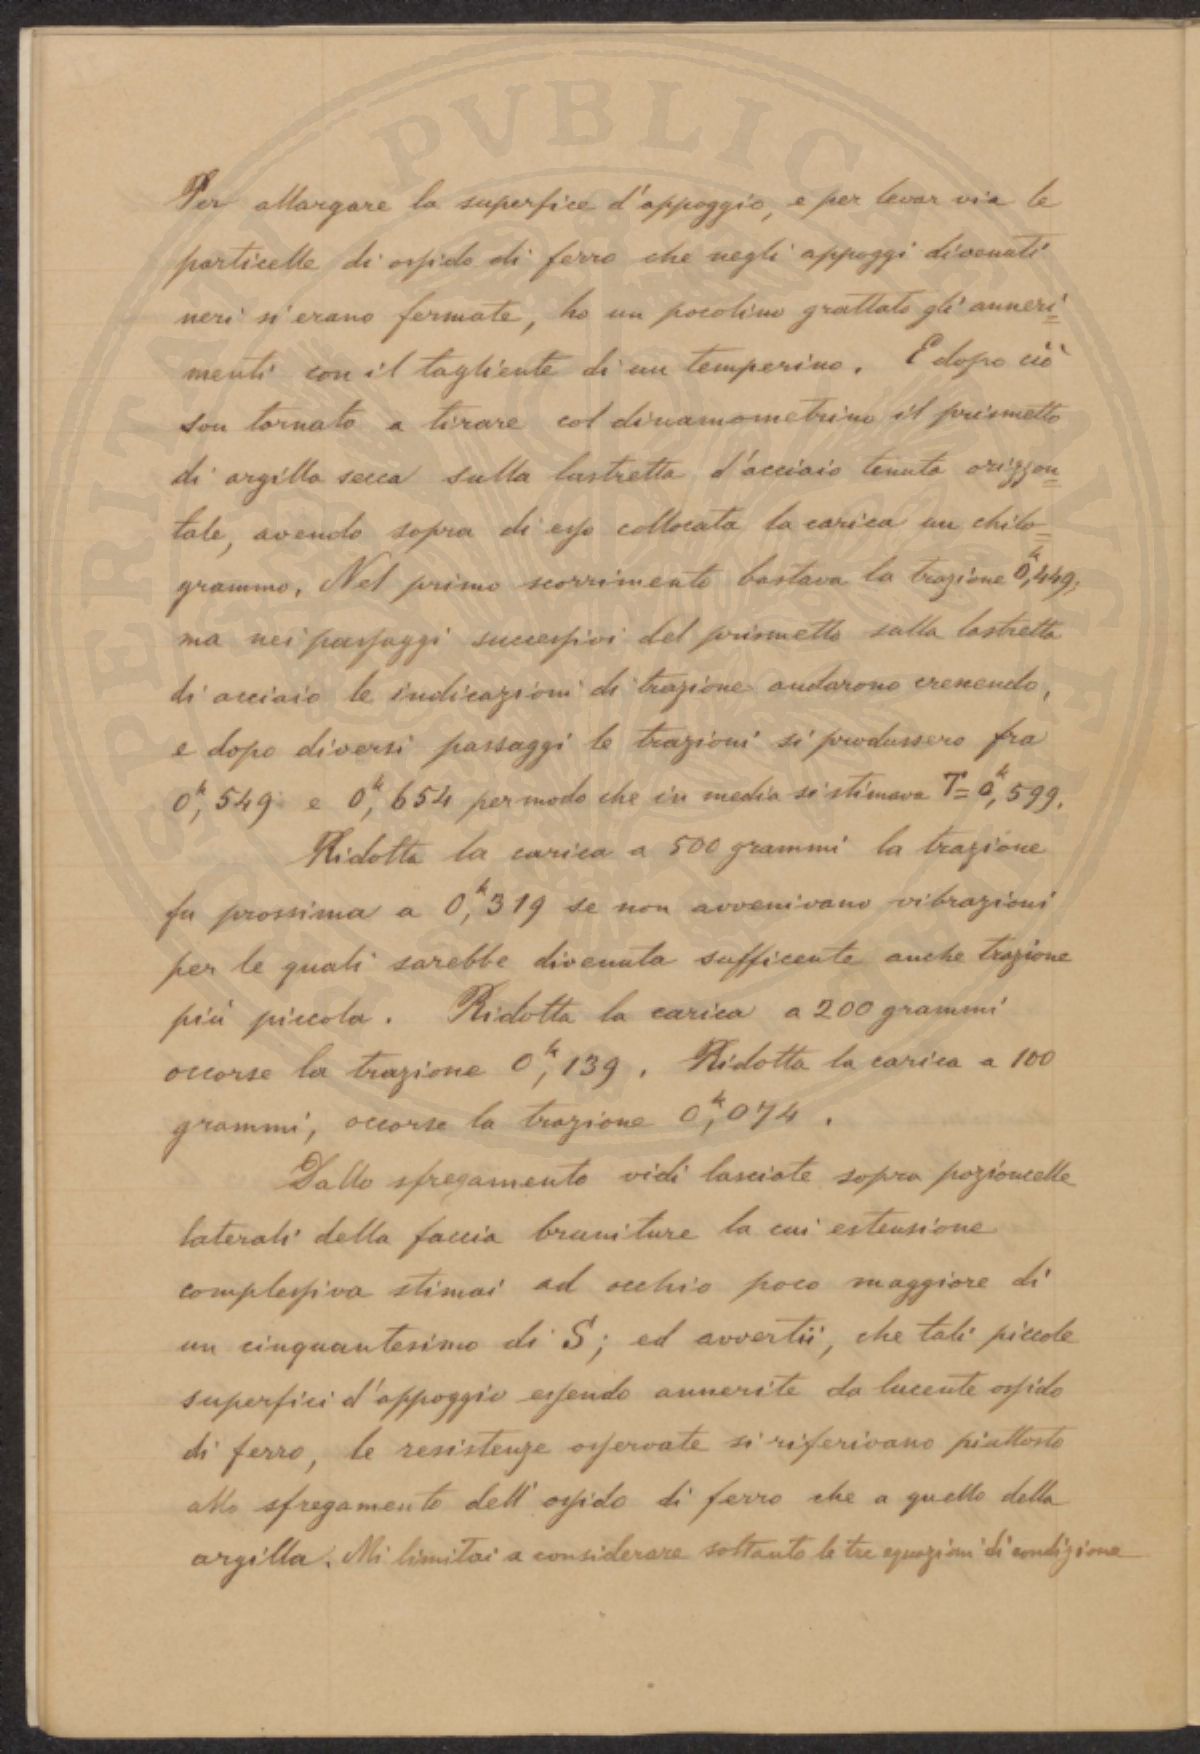 Per allargare la superfice d'appoggio, e per levar via le
particelle di ossido di ferro che negli appoggi divenuti
neri si erano fermate, ho un pocolino grattato gli anneri=
menti con il tagliente di un temperino. E dopo ciò
son tornato a tirare col dinamometrino il prismetto
di argilla secca sulla lastretta d'acciaio tenuta orizzon=
tale, avendo sopra di esso collocata la carica un chilo=
grammo. Nel primo scorrimento bastava la trazione 0,ᵏ449;
ma nei passaggi successivi del prismetto sulla lastretta
di acciaio le indicazioni di trazione andarono crescendo,
e dopo diversi passaggi le trazioni si produssero fra
0,ᵏ549 e 0,ᵏ654 per modo che in media si stimava T=0,ᵏ599.
Ridotta la carica a 500 grammi la trazione
fu prossima a 0,ᵏ319 se non avvenivano vibrazioni
per le quali sarebbe divenuta sufficente anche trazione
più piccola. Ridotta la carica a 200 grammi
occorse la trazione 0,ᵏ139. Ridotta la carica a 100
grammi, occorse la trazione 0,ᵏ074.
Dallo sfregamento vidi lasciate sopra pozioncelle
laterali della faccia bruniture la cui estensione
complessiva stimai ad occhio poco maggiore di
un cinquantesimo di S; ed avvertii, che tali piccole
superfici d'appoggio essendo annerite da lucente ossido
di ferro, le resistenze osservate si riferivano piuttosto
allo sfregamento dell'ossido di ferro che a quello della
argilla. Mi limitai a considerare soltanto le tre equazioni di condizione